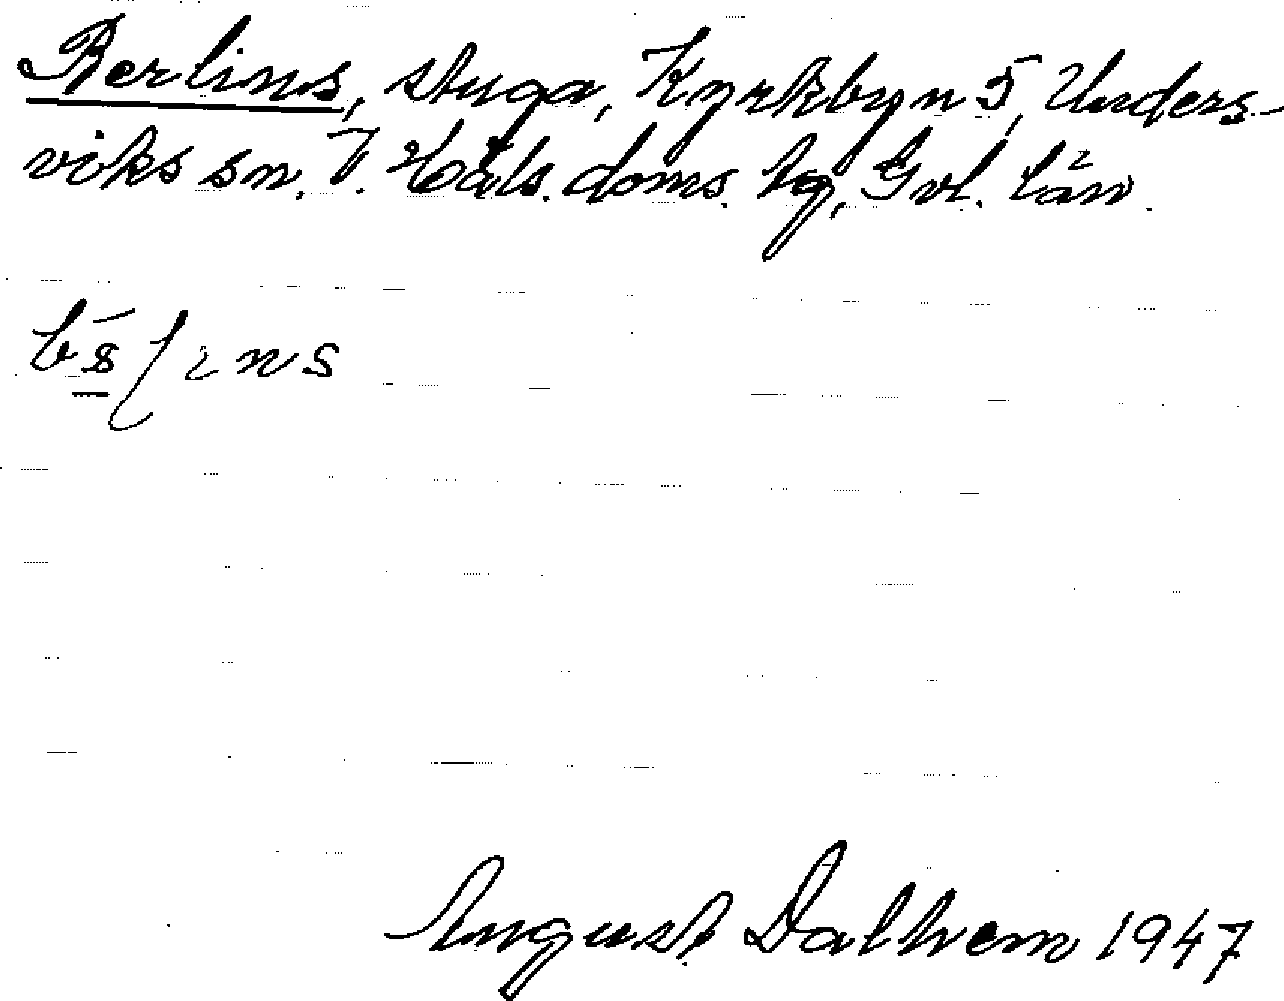 Berlins, stuga, Kyrkbyn 5, Unders-
viks sn. V. Häls. doms. lg, Gvl. län.
August Dalhem 1947